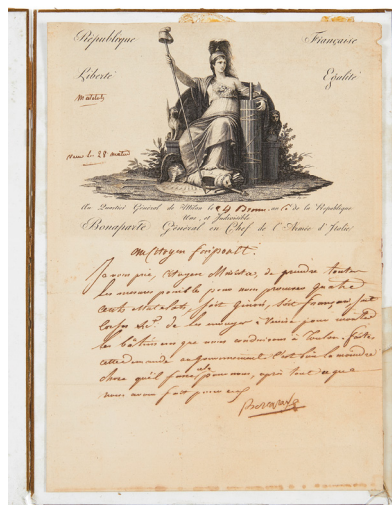 République Française
Liberté Egalité
Matelots
Au Quartier Général de Milan le 24 Brum. an 6e de la République
Une et Indivisible
Bonaparte Général en Chef de l'Armée d'Italie
au Citoyen Faipoult.
Je vous prie, Citoyen Ministre, de prendre toutes
les mesures possible pour nous procurer quatre
cents Matelots, soit Génois, soit français, soit
Corses &c. de les envoyer à Venise pour
les bâtimens que nous conduirons à Toulon. faites
cette demande au Gouvernement. C'est bien la moindre
chose qu'il fasse pour nous, après tout ce que
nous avons fait pour eux
Bonaparte